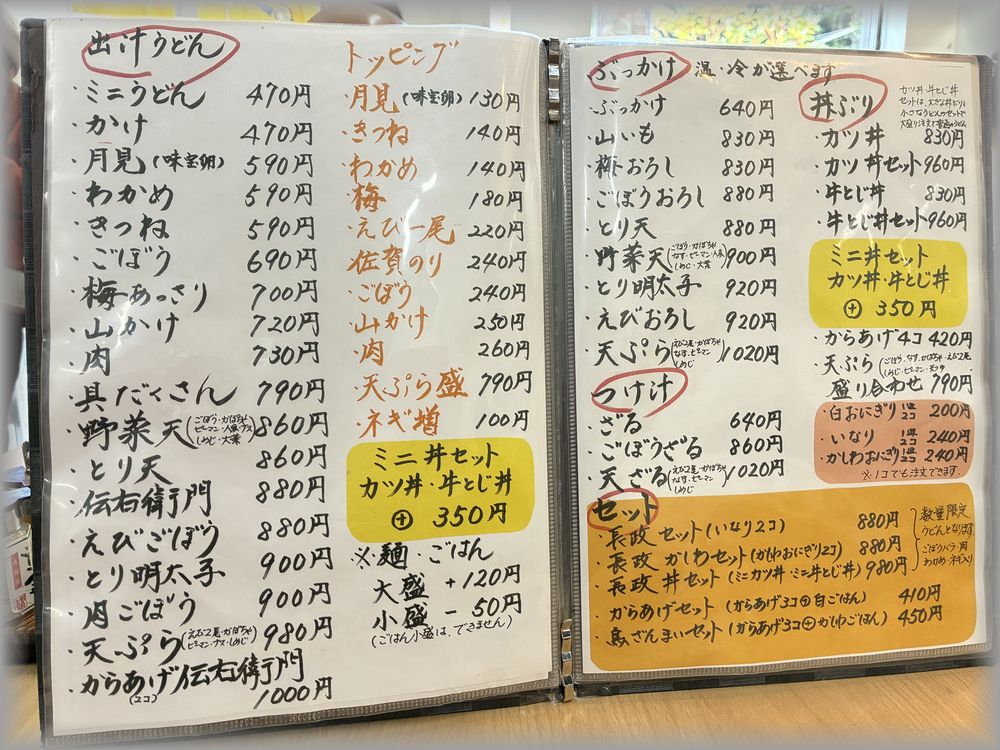 出汁うどん
・ミニうどん 470円
・かけ 470円
・月見(味宝卵) 590円
・わかめ 590円
・きつね 590円
・ごぼう 690円
・梅あっさり 700円
・山かけ 720円
・肉 730円
・具だくさん 790円
・野菜天(ごぼう・かぼちゃ ピーマン・人参・ナス しめじ・大葉) 860円
・とり天 860円
・伝右衛門 880円
・えびごぼう 880円
・とり明太子 900円
・肉ごぼう 900円
・天ぷら(えび2尾・かぼちゃ ピーマン・ナス・しめじ) 980円
・からあげ伝右衛門
(2コ) 1000円
トッピング
・月見(味宝卵) 130円
・きつね 140円
・わかめ 140円
・梅 180円
・えび一尾 220円
・佐賀のり 240円
・ごぼう 240円
・山かけ 250円
・肉 260円
・天ぷら盛 790円
・ネギ増 100円
ミニ丼セット
カツ丼・牛とじ丼
⊕ 350円
※麺・ごはん
大盛 +120円
小盛 -50円
(ごはん小盛は、できません)
ぶっかけ 温・冷が選べます
・ぶっかけ 640円
・山いも 830円
・梅おろし 830円
・ごぼうおろし 880円
・とり天 880円
・野菜天(ごぼう・かぼちゃ なす・ピーマン・人参 しめじ・大葉) 900円
・とり明太子 920円
・えびおろし 920円
・天ぷら(えび2尾・かぼちゃ なす・ピーマン しめじ) 1020円
つけ汁
・ざる 640円
・ごぼうざる 860円
・天ざる(えび2尾・かぼちゃ なす・ピーマン しめじ) 1020円
丼ぶり
カツ丼・牛とじ丼
セットは、大きな丼ぶりと
小さなうどんのセットで
・カツ丼 830円
・カツ丼セット 960円
・牛とじ丼 830円
・牛とじ丼セット 960円
ミニ丼セット
カツ丼・牛とじ丼
⊕ 350円
・からあげ4コ 420円
・天ぷら
盛り合わせ 790円
・白おにぎり 1皿2コ 200円
・いなり 1皿2コ 240円
・かしわおにぎり 1皿2コ 240円
※1コでも注文できます。
セット
・長政セット(いなり2コ) 880円
・長政かしわセット(かしわおにぎり2コ) 880円
・長政丼セット(ミニカツ丼・ミニ牛とじ丼) 980円
数量限定
うどんとなります
ごぼうバラ・肉
わかめ・ネギ入り
・からあげセット(からあげ3コ⊕白ごはん) 410円
・鳥ざんまいセット(からあげ3コ⊕かしわごはん) 450円